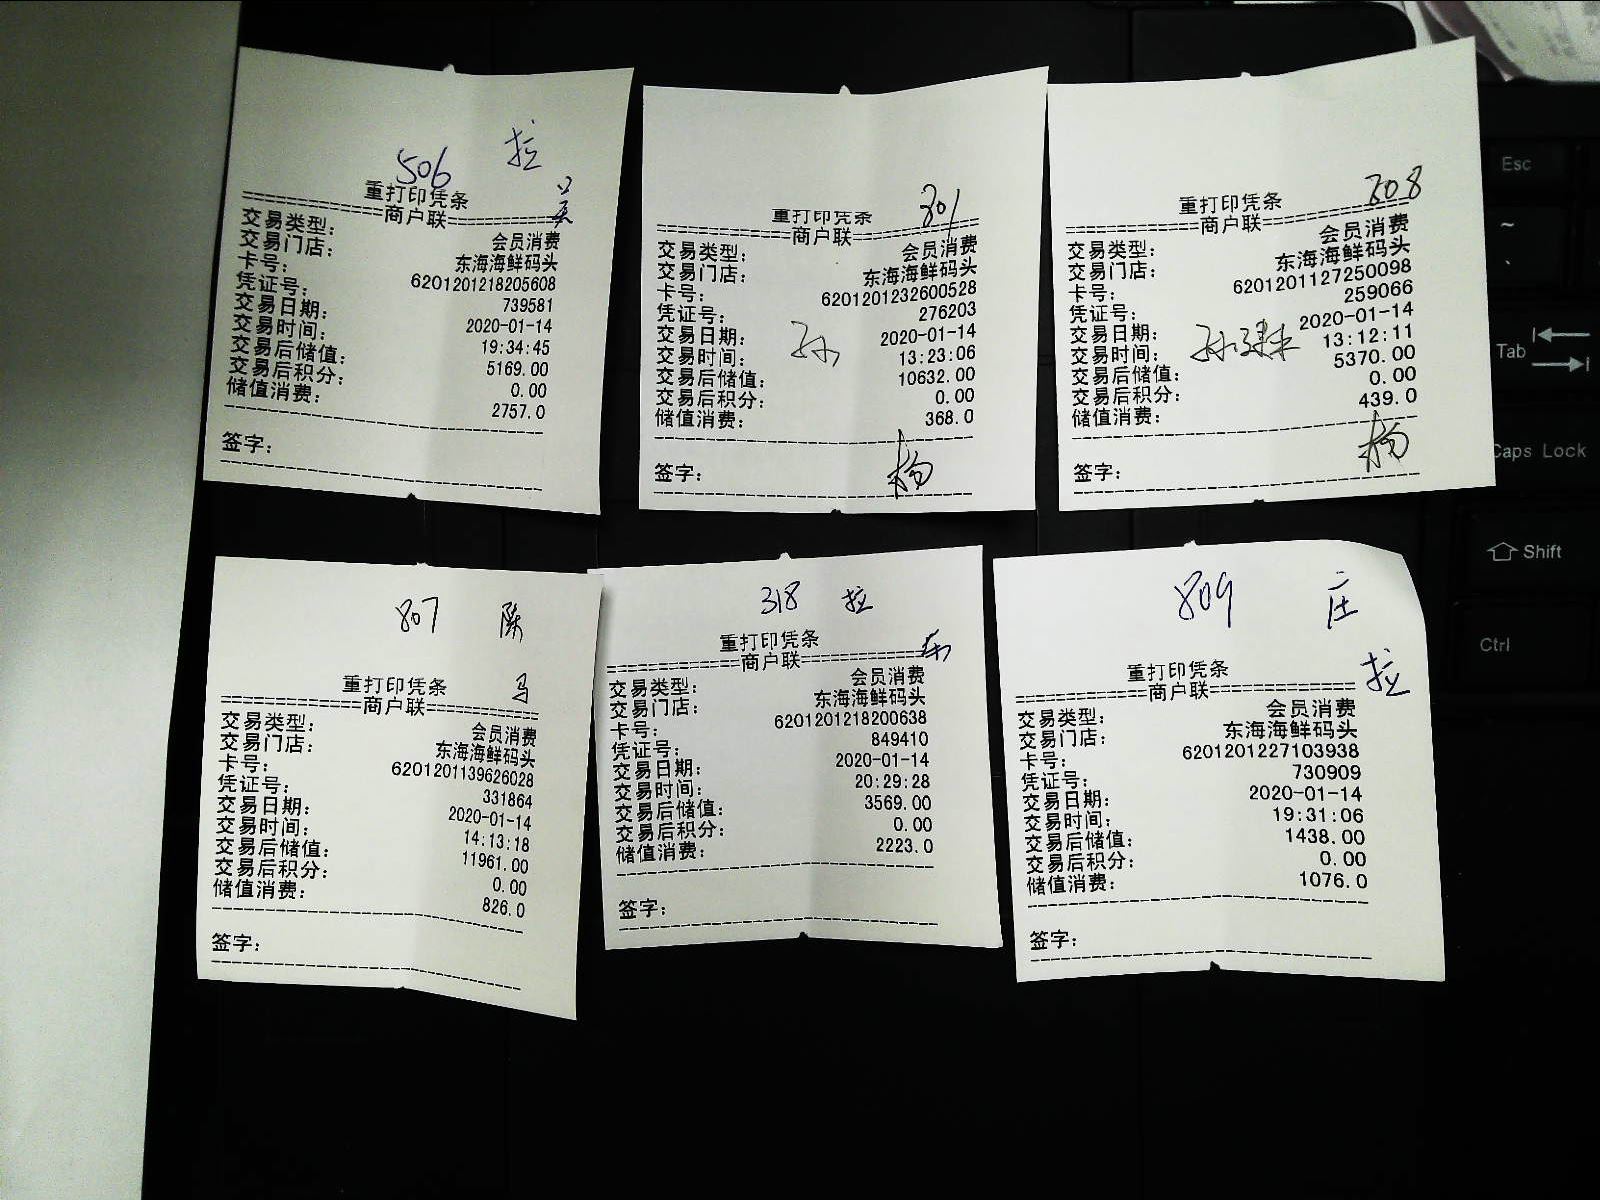 506 拉
重打印凭条 吴
==============商户联==============
交易类型: 会员消费
交易门店: 东海海鲜码头
卡号: 6201201218205608
凭证号: 739581
交易日期: 2020-01-14
交易时间: 19:34:45
交易后储值: 5169.00
交易后积分: 0.00
储值消费: 2757.0
签字:
801
重打印凭条
==============商户联==============
交易类型: 会员消费
交易门店: 东海海鲜码头
卡号: 6201201232600528
凭证号: 276203
交易日期: 2020-01-14
交易时间: 13:23:06
孙
交易后储值: 10632.00
交易后积分: 0.00
储值消费: 368.0
签字: 杨
808
重打印凭条
==============商户联==============
交易类型: 会员消费
交易门店: 东海海鲜码头
卡号: 6201201127250098
凭证号: 259066
交易日期: 2020-01-14
交易时间: 13:12:11
交易后储值: 5370.00
交易后积分: 0.00
储值消费: 439.0
签字: 杨
807 陈
重打印凭条 马
==============商户联==============
交易类型: 会员消费
交易门店: 东海海鲜码头
卡号: 6201201139626028
凭证号: 331864
交易日期: 2020-01-14
交易时间: 14:13:18
交易后储值: 11961.00
交易后积分: 0.00
储值消费: 826.0
签字:
318 拉
重打印凭条
==============商户联==============
交易类型: 会员消费
交易门店: 东海海鲜码头
卡号: 6201201218200638
凭证号: 849410
交易日期: 2020-01-14
交易时间: 20:29:28
交易后储值: 3569.00
交易后积分: 0.00
储值消费: 2223.0
签字:
809 庄
重打印凭条 拉
==============商户联==============
交易类型: 会员消费
交易门店: 东海海鲜码头
卡号: 6201201227103938
凭证号: 730909
交易日期: 2020-01-14
交易时间: 19:31:06
交易后储值: 1438.00
交易后积分: 0.00
储值消费: 1076.0
签字:
Esc
~
`
Tab
Caps Lock
Shift
Ctrl